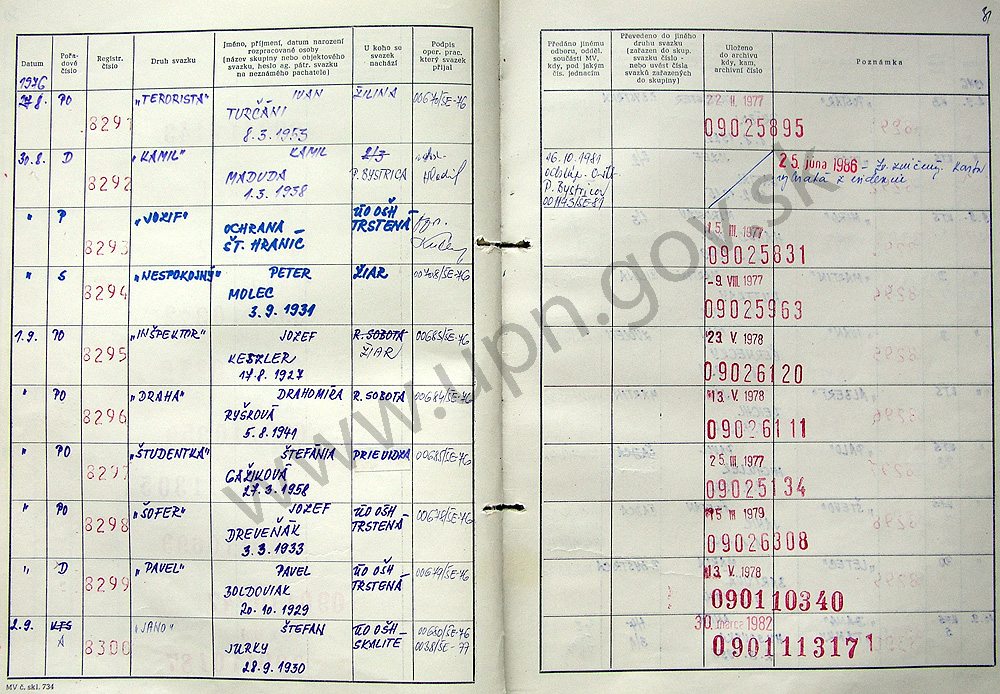 81
Datum
Pořadové číslo
Registr. číslo
Druh svazku
Jméno, příjmení, datum narození rozpracované osoby (název skupiny nebo objektového svazku, heslo ag. pátr. svazku na neznámého pachatele)
U koho se svazek nachází
Podpis oper. prac. který svazek přijal
Předáno jinému odboru, odděl. součásti MV, kdy, pod jakým čís. jednacím
Převedeno do jiného druhu svazku (zařazen do skup. svazku číslo - nebo uvést čísla svazků zařazených do skupiny)
Uloženo do archivu kdy, kam, archivní číslo
Poznámka
1976
27.8. PO 8291 „TERORISTA" IVAN ŽILINA 00670/ŠE-76 22 II. 1977
TURČÁNI
8.3.1953
09025895
30.8. D 8292 „KAMIL" KAMIL
MADUDA P. BYSTRICA
1.3.1938
16.10.1981
P. Bystrica
00143/ŠE-81
25. júna 1986
" P 8293 „JOZIF" OCHRANA ÚO OŠH
ŠT. HRANIC TRSTENÁ
15. III. 1977
09025831
" S 8294 „NESPOKOJNÝ" PETER ŽIAR 00708/ŠE-76 -9. VIII. 1977
MOLEC
3.9.1931
09025963
1.9. PO 8295 „INŠPEKTOR" JOZEF R. SOBOTA 00683/ŠE-76 23. V. 1978
KESZLER ŽIAR
17.8.1927
09026120
" PO 8296 „DRAHA" DRAHOMÍRA R. SOBOTA 00684/ŠE-76 13. V. 1978
RYŠKOVÁ
5.8.1941
09026111
" PO 8297 „ŠTUDENTKA" ŠTEFÁNIA PRIEVIDZA 00685/ŠE-76 25 III. 1977
GAŽIKOVÁ
27.3.1958
09025134
" PO 8298 „ŠOFER" JOZEF ÚO OŠH 00678/ŠE-76 15 III 1979
DREVEŇÁK TRSTENÁ
3.3.1933
09026308
" D 8299 „PAVEL" PAVEL ÚO OŠH 00679/ŠE-76 13. V. 1978
BOLDOVIAK TRSTENÁ
20.10.1929
090110340
2.9. KTS 8300 „JANO" ŠTEFAN ÚO OŠH 00680/ŠE-76 30. marca 1982
A JURKY SKALITÉ 0038/ŠE-77
28.9.1930
0901113171
MV č. skl. 734
www.upn.gov.sk